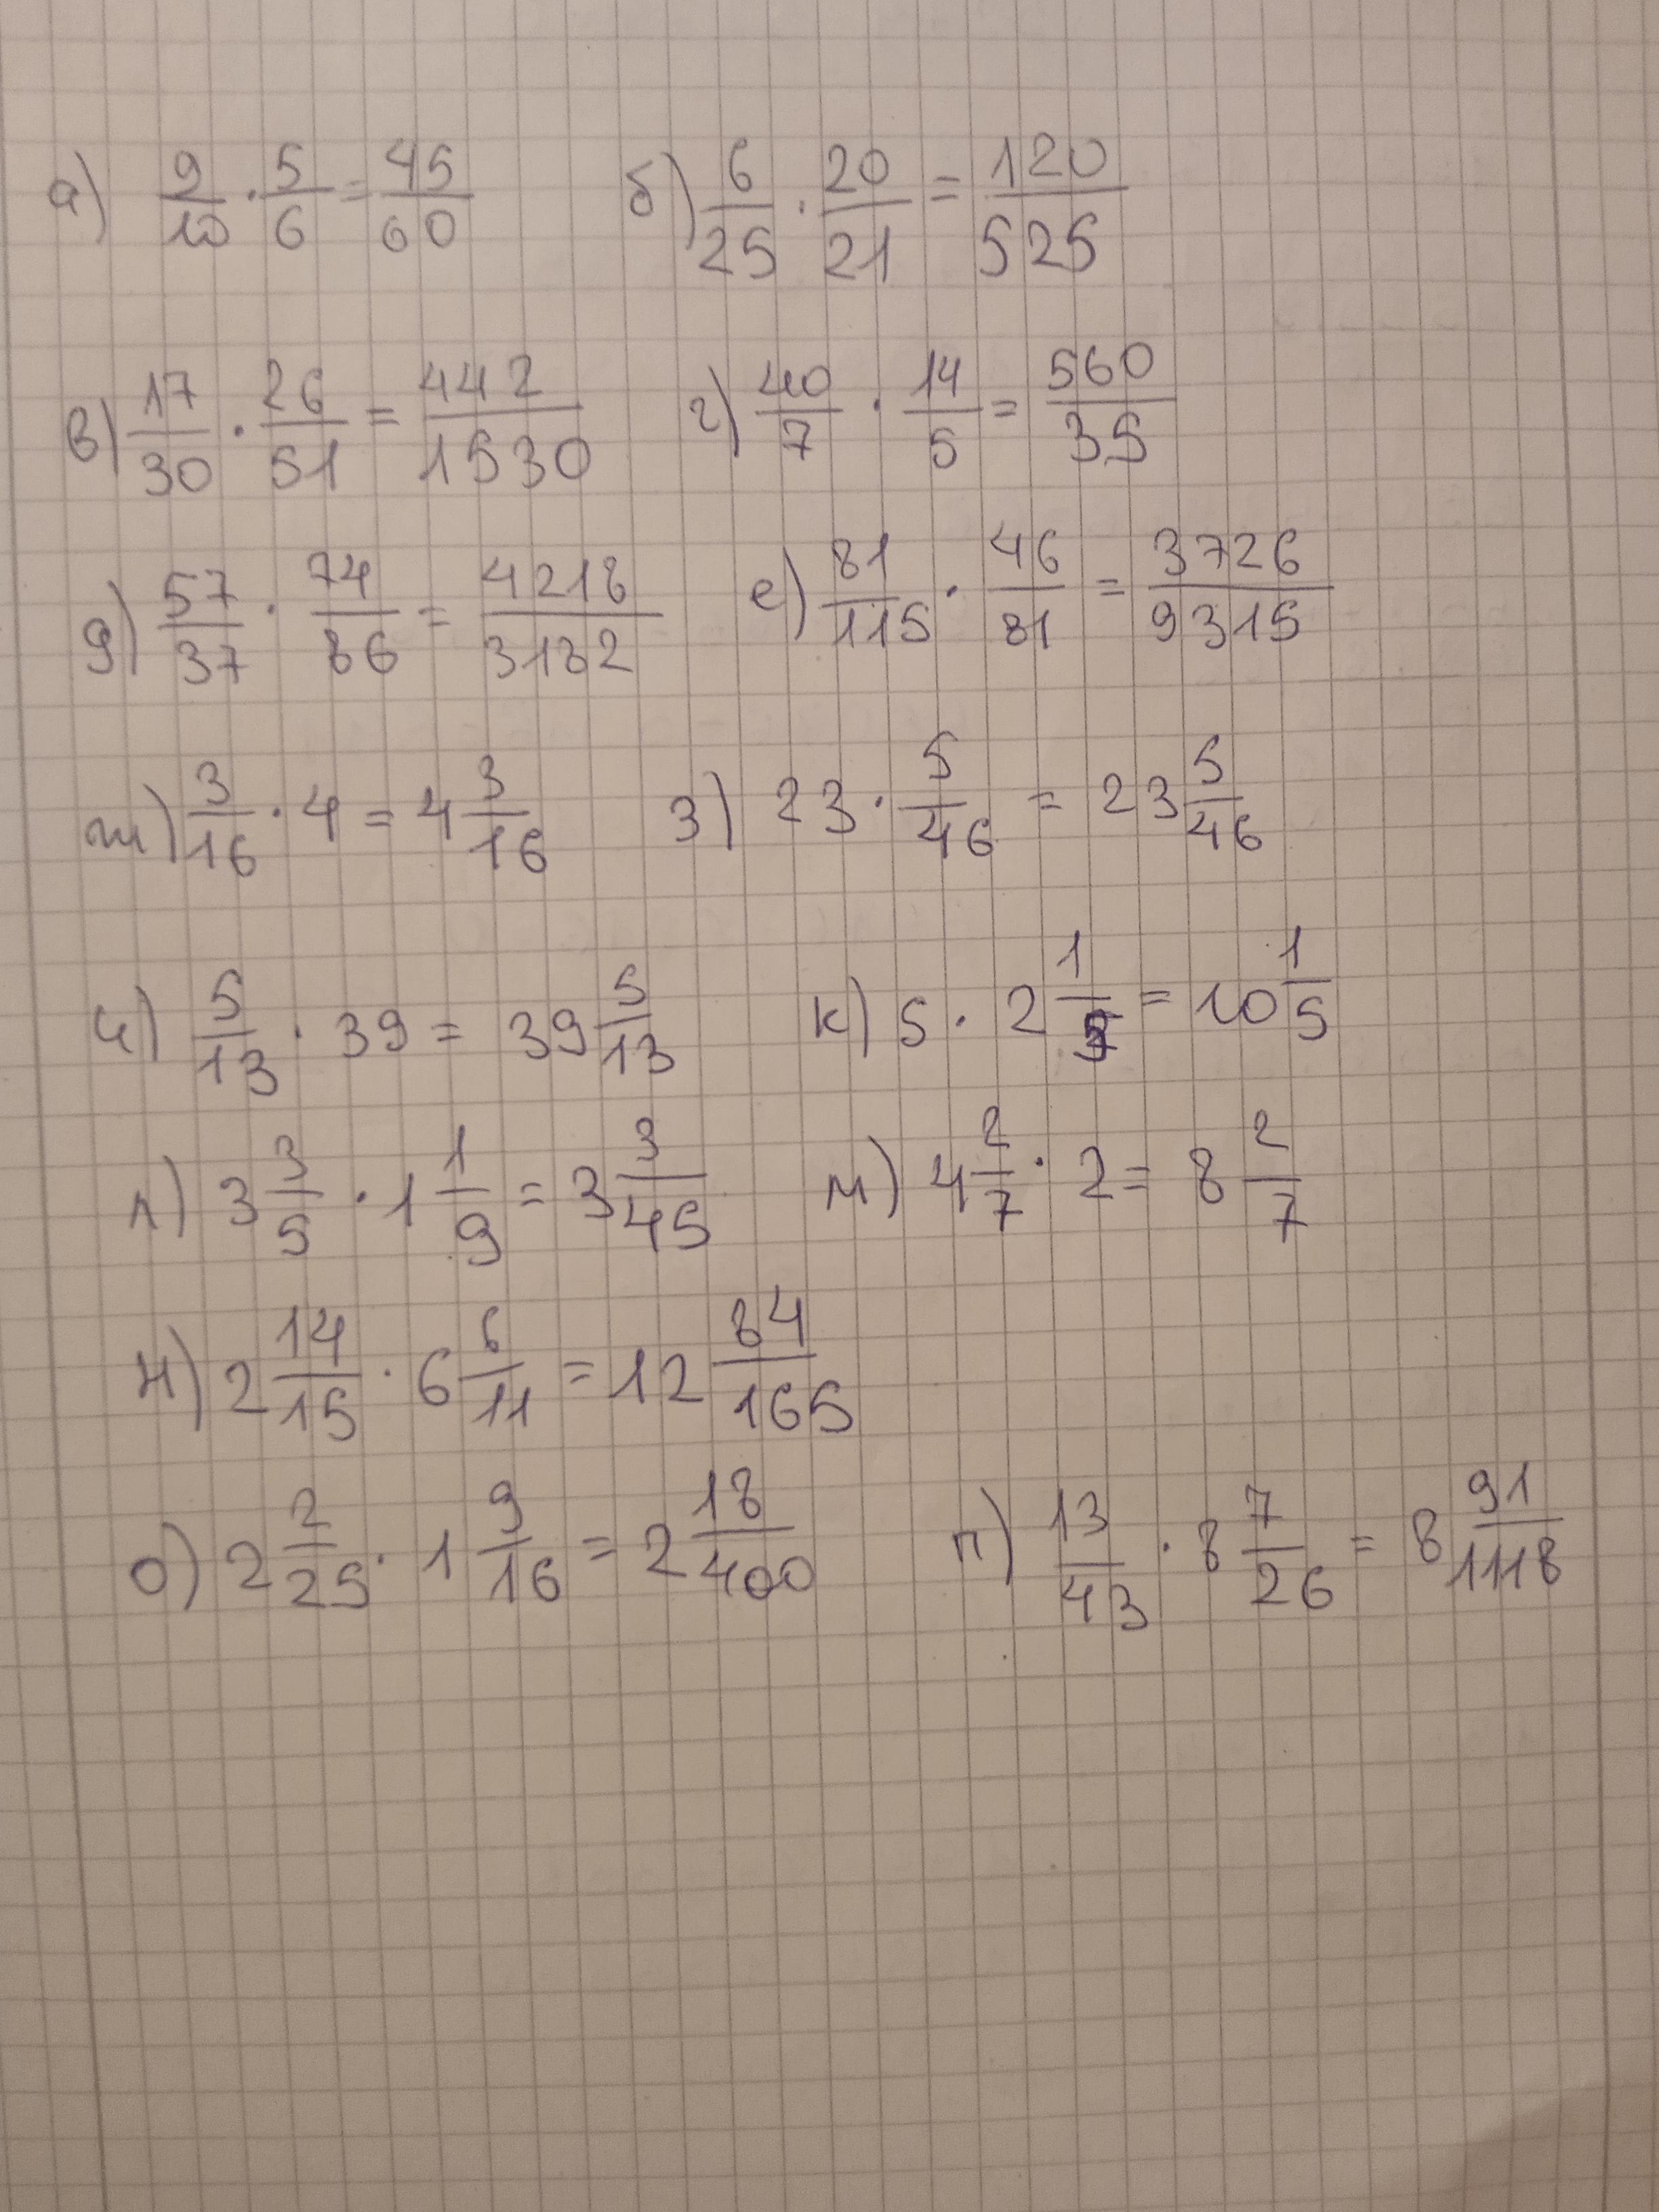 а) 9/10 · 5/6 = 45/60 б) 6/25 · 20/21 = 120/525
в) 17/30 · 26/51 = 442/1530 г) 40/7 · 14/5 = 560/35
д) 57/37 · 74/86 = 4218/3182 е) 81/115 · 46/81 = 3726/9315
ж) 3/16 · 4 = 4 3/16 з) 23 · 5/46 = 23 5/46
и) 5/13 · 39 = 39 5/13 к) 5 · 2 1/5 = 10 1/5
л) 3 3/5 · 1 1/9 = 3 3/45 м) 4 2/7 · 2 = 8 2/7
н) 2 14/15 · 6 6/11 = 12 84/165
о) 2 2/25 · 1 9/16 = 2 18/400 п) 13/43 · 8 7/26 = 8 91/1118